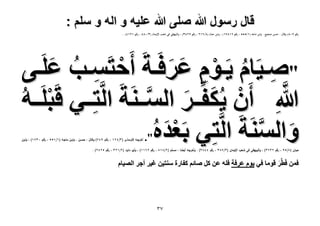 قال رسول الله صلى الله عليه و اله و سلم :
"صِـيَـامُ يَـوْمِ عَرَفَـةَ أَحْتَسِـبُ عَلَـى
اللَّهِ أَنْ يُكَفِّـرَ السَّـنَةَ الَّتِـي قَبْلَـهُ
وَالسَّنَةَ الَّتِي بَعْدَهُ".
فمن فطّر قوما في يوم عرفة فله عن كل صائم كفارة سنتين غير أجر الصيام
٣٧